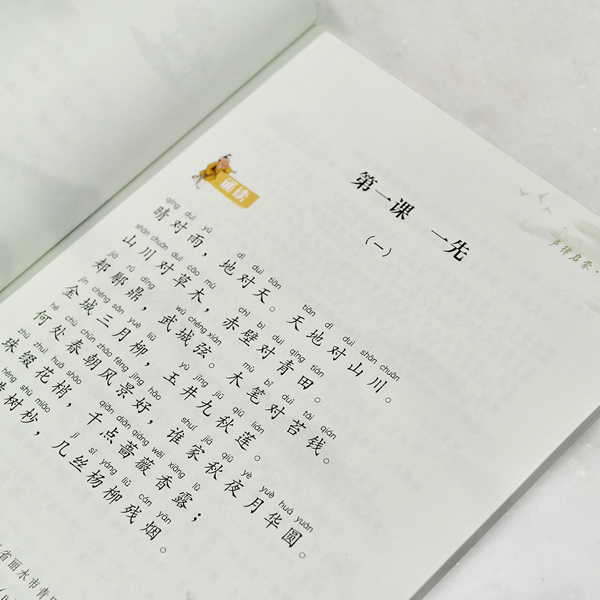 第一课 一先
（一）
声律启蒙
诵读
qíng duì yǔ dì duì tiān tiān dì duì shān chuān
晴对雨，地对天。天地对山川。
shān chuān duì cǎo mù chì bì duì qīng tián
山川对草木，赤壁对青田。
jiá rǔ dǐng wǔ chéng xián mù bǐ duì tái qián
郏鄏鼎，武城弦。木笔对苔钱。
jīn chéng sān yuè liǔ yù jǐng jiǔ qiū lián
金城三月柳，玉井九秋莲。
hé chù chūn zhāo fēng jǐng hǎo shuí jiā qiū yè yuè huá yuán
何处春朝风景好，谁家秋夜月华圆。
zhū zhuì huā shāo qiān diǎn qiáng wēi xiāng lù
珠缀花梢，千点蔷薇香露；
héng shù miǎo jǐ sī yáng liǔ cán yān
树杪，几丝杨柳残烟。
省丽水市青